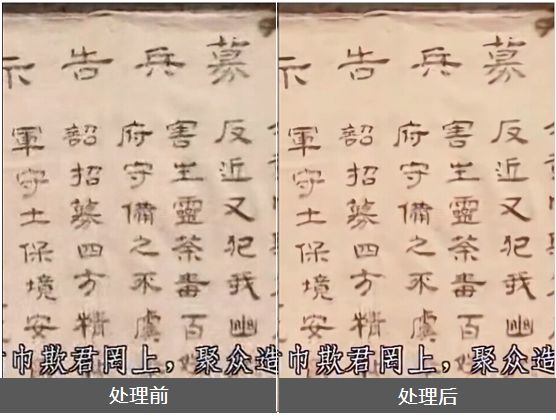 募兵告示
反近又犯我幽
害生靈荼毒百
府守備之不虞
韶招募四方精
軍守土保境安
巾欺君罔上，聚众造
处理前
募兵告示
反近又犯我幽
害生靈荼毒百
府守備之不虞
韶招募四方精
軍守土保境安
巾欺君罔上，聚众造
处理后